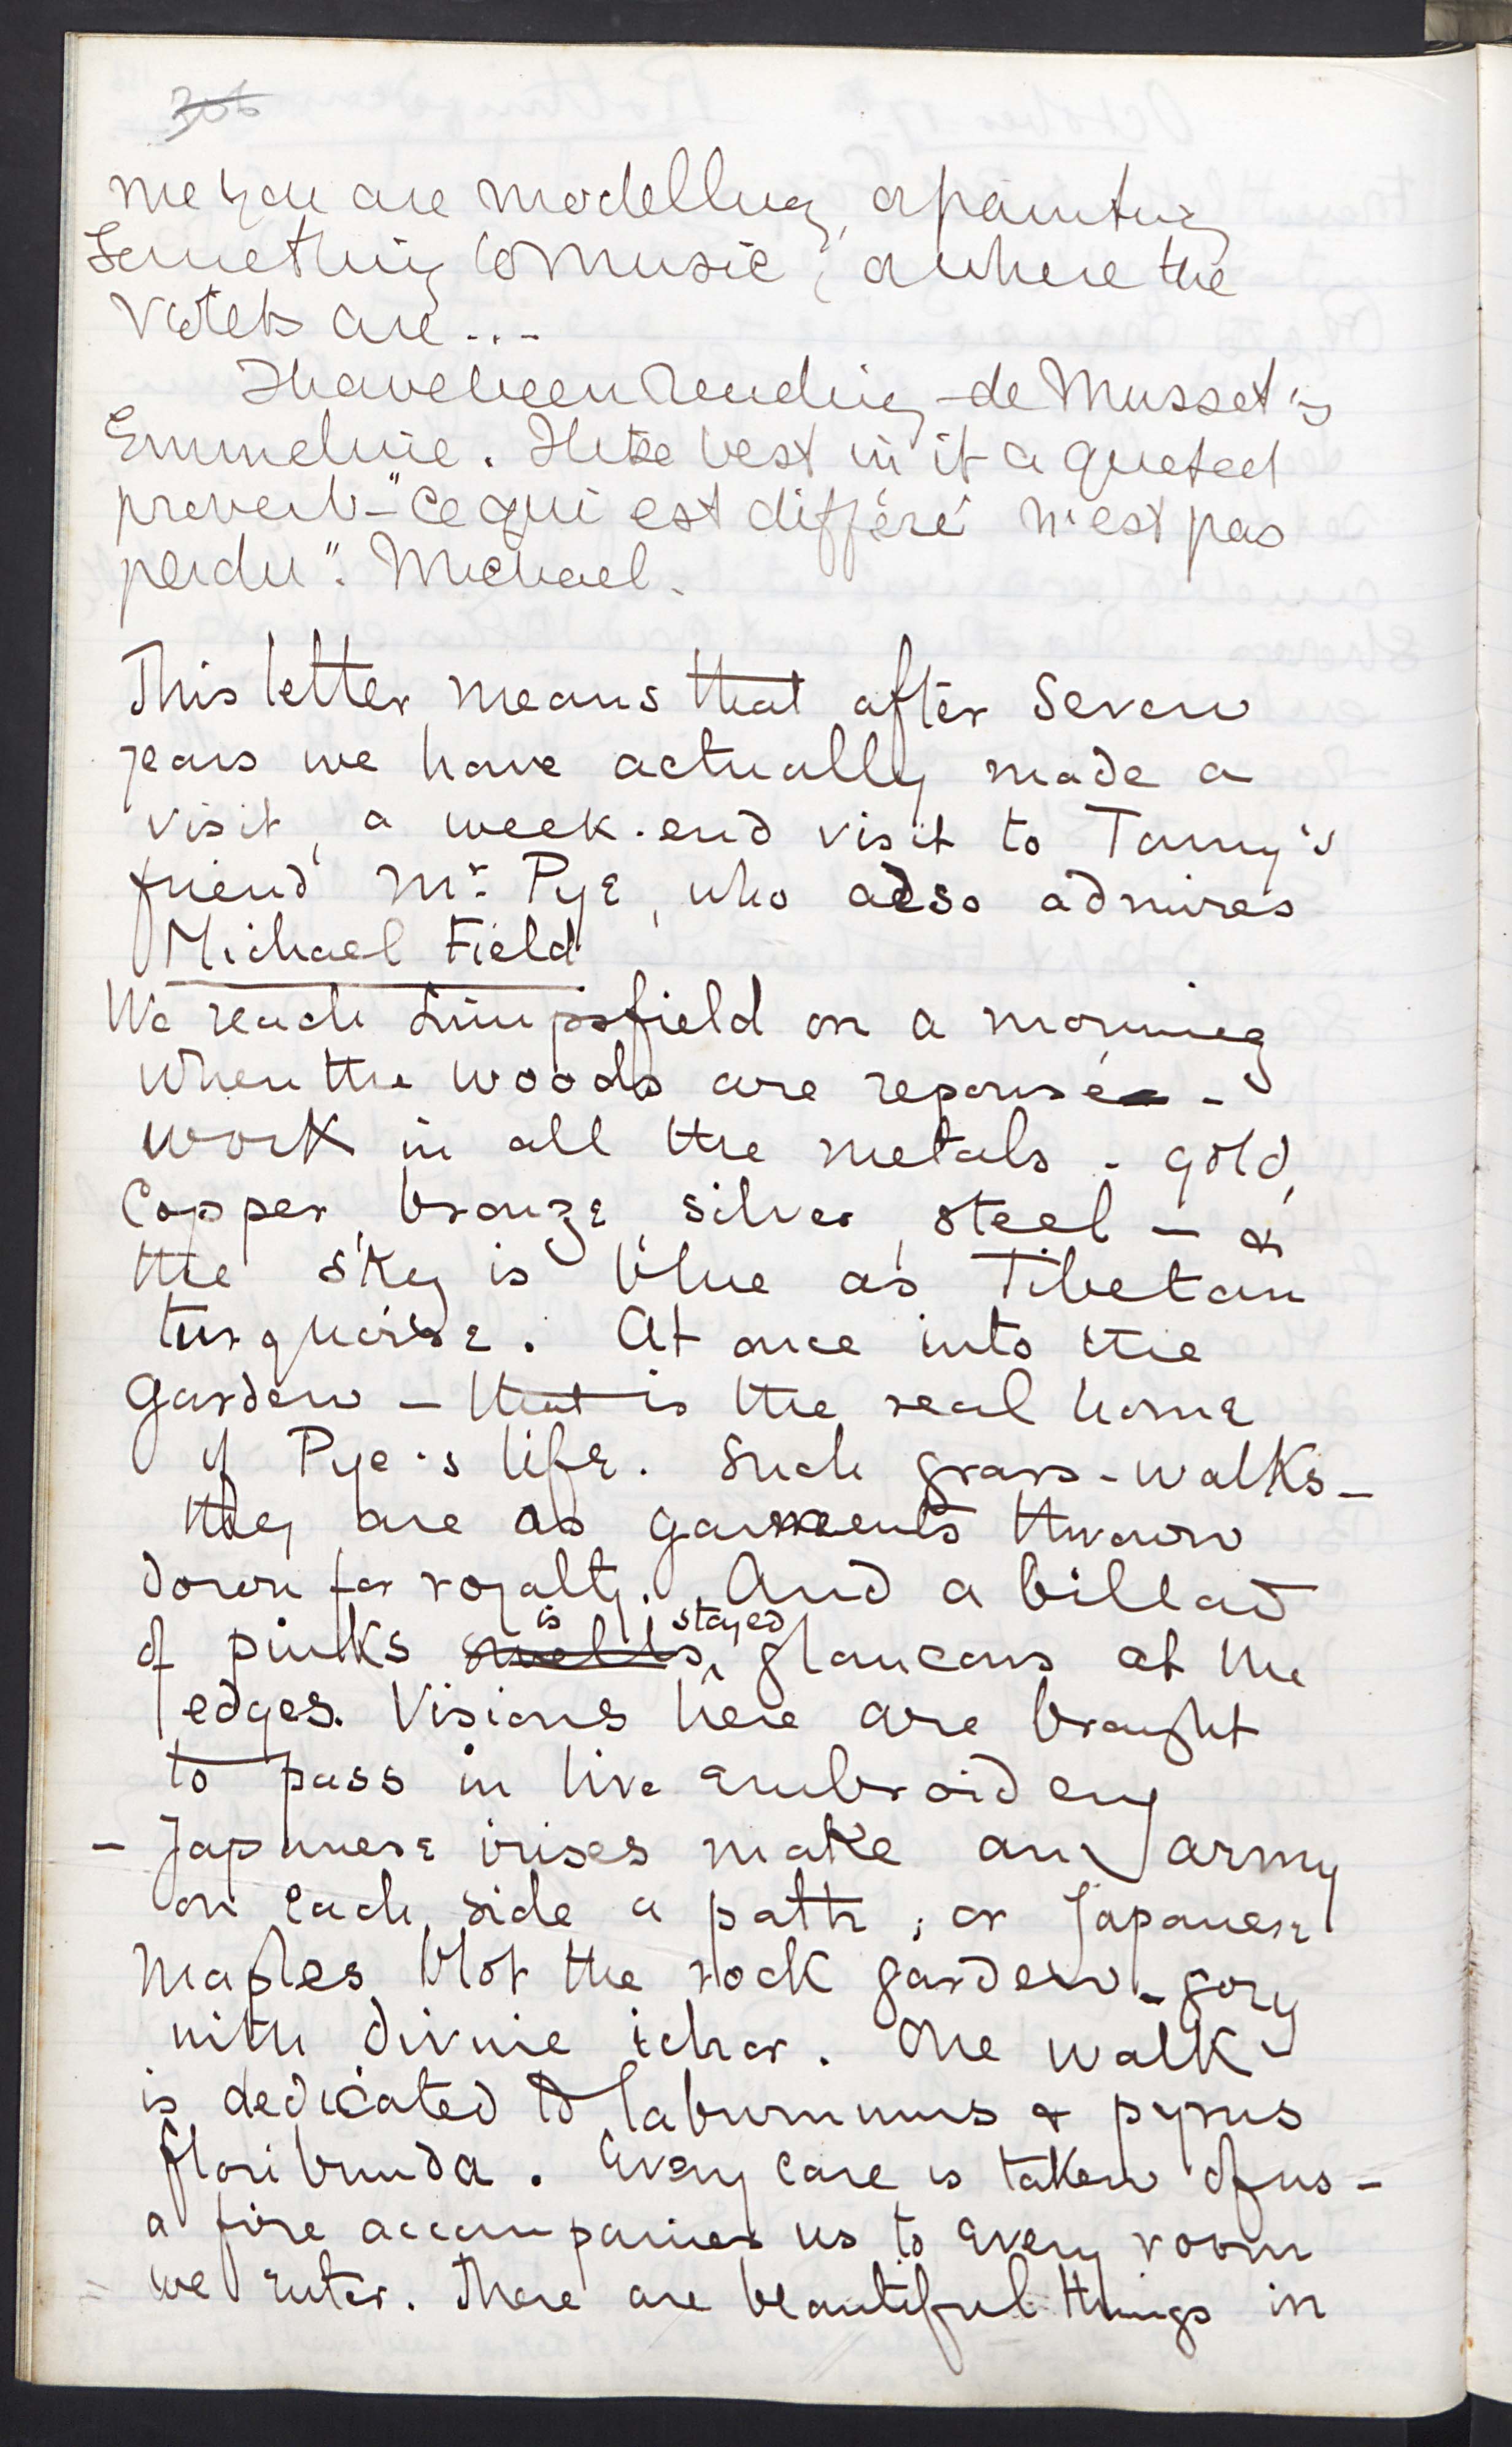 306
me you are modelling, or painting
something to music; or where the
violets are...
I have been reading de Musset's
Emmeline. I like best in it a quoted
proverb – "Ce qui est différé n'est pas
perdu". Michael.
This letter means that after seven
years we have actually made a
visit, a week-end visit to Tommy's
friend Mr. Pye, who also admires
Michael Field
We reach Limpsfield on a morning
when the woods are repoussé –
work in all the metals – gold,
copper, bronze, silver, steel – &
the sky is blue as Tibetan
turquoise. At once into the
garden – that is the real home
of Pye's life. Such grass-walks –
they are as garments thrown
down for royalty. And a
of pinks is stayed glaucous at the
edges. Visions here are brought
to pass in live embroidery
– Japanese irises make an army
on each side a path; or Japanese
maples blot the rock garden – gory
with divine ichor. One walk
is dedicated to laburnums & pyrus
floribunda. Every care is taken of us –
a fire accompanies us to every room
we enter. There are beautiful things in